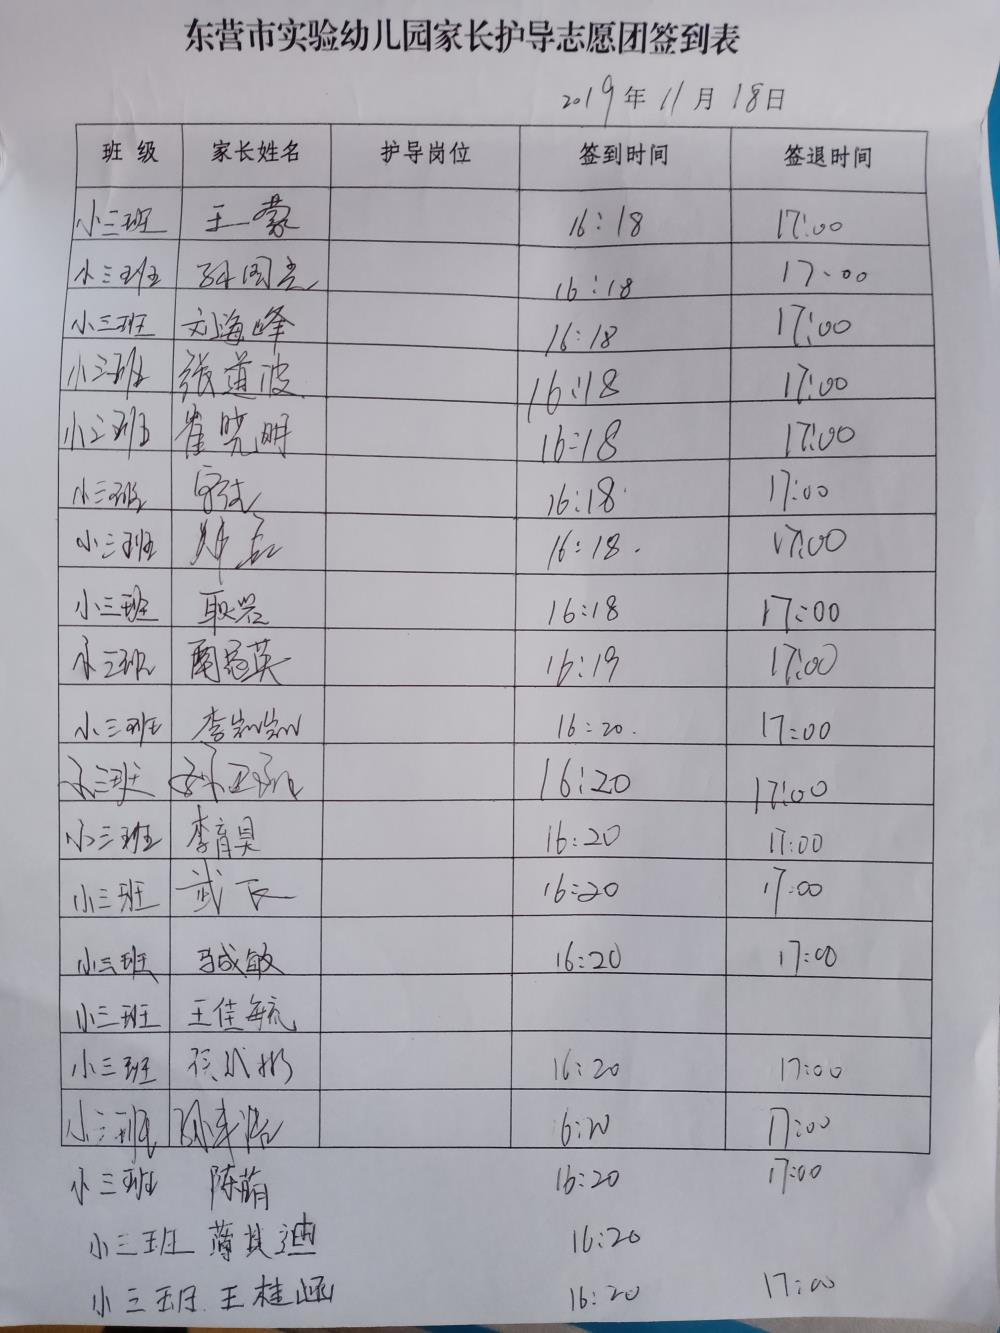 东营市实验幼儿园家长护导志愿团签到表
2019年11月18日
班级 家长姓名 护导岗位 签到时间 签退时间
小三班 王蒙 16:18 17:00
小三班 孙国兰 16:18 17:00
小三班 刘海峰 16:18 17:00
小三班 张道波 16:18 17:00
小三班 崔晓明 16:18 17:00
小三班 16:18 17:00
小三班 16:18 17:00
小三班 耿岩 16:18 17:00
小三班 周冠英 16:19 17:00
小三班 李 16:20 17:00
小三班 16:20 17:00
小三班 李育昊 16:20 17:00
小三班 武 16:20 17:00
小三班 马成敏 16:20 17:00
小三班 王佳毓
小三班 16:20 17:00
小三班 6:20 17:00
小三班 陈萌 16:20 17:00
小三班 薄其迪 16:20
小三班 王桂涵 16:20 17:00